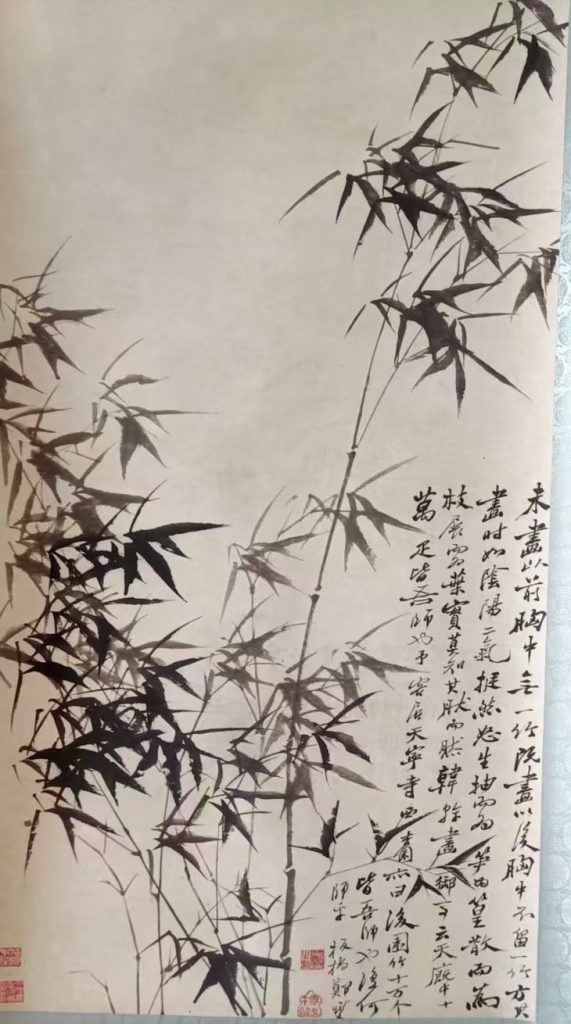 未畫以前胸中无一竹既畫以後胸中不留一竹方其
畫時如陰陽二氣挺然怒生抽而為笋為篁散而為
枝展而為葉實莫知其然而然韓幹畫御馬云天廄中十
萬疋皆吾師也予客居天寧寺西杏園亦曰後園竹十万个
皆吾師也復何
師乎板橋鄭燮